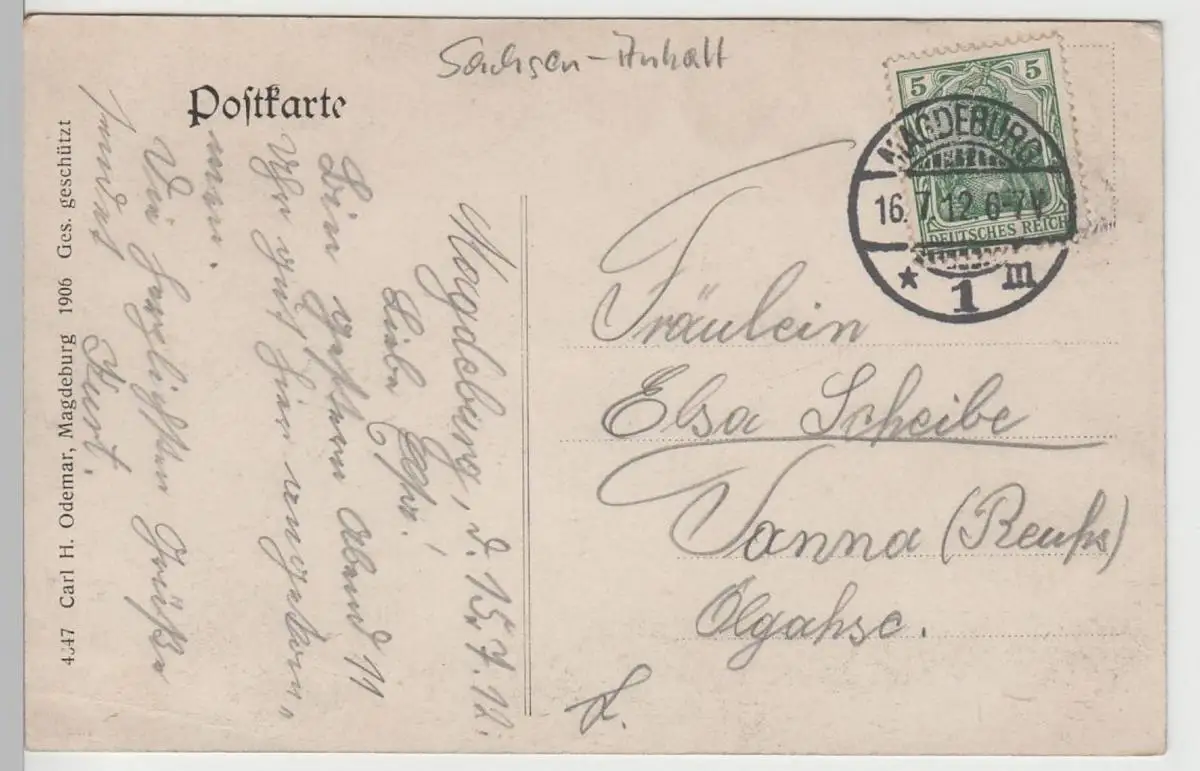 Sachsen-Anhalt
Postkarte
5 5
DEUTSCHES REICH
MAGDEBURG
16.7.12.6-7V
* 1 m
Magdeburg, d. 15.7.12.
Liebe
Bin gestern Abend 11
Uhr gut hier angekom-
men.
Die herzlichsten Grüße
sendet
Kurt.
Fräulein
Elsa Scheibe
Tanna (Reuß)
Olgahsc.
4347 Carl H. Odemar, Magdeburg 1906 Ges. geschützt